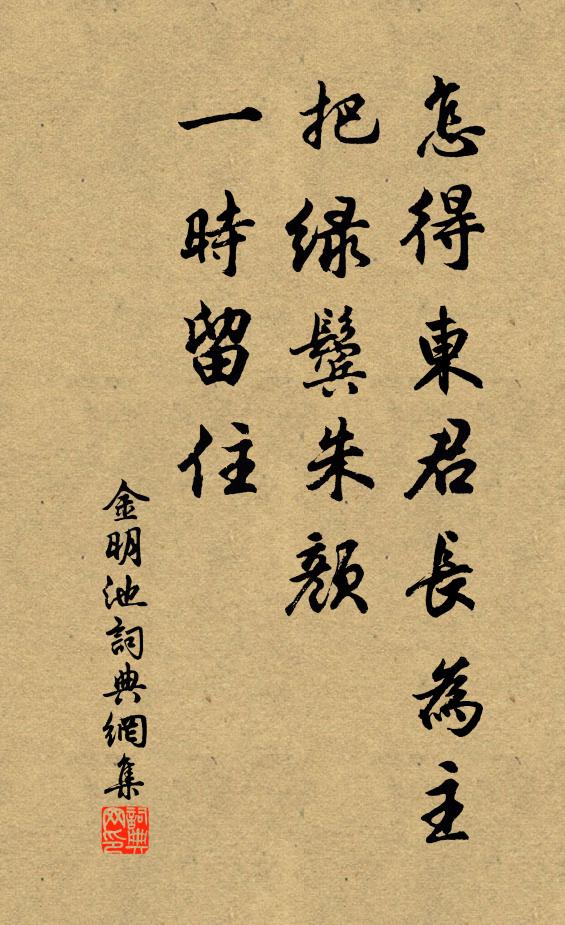 怎得東君長為主
把绿鬓朱颜
一時留住
金明池詞典網集
詞典网印